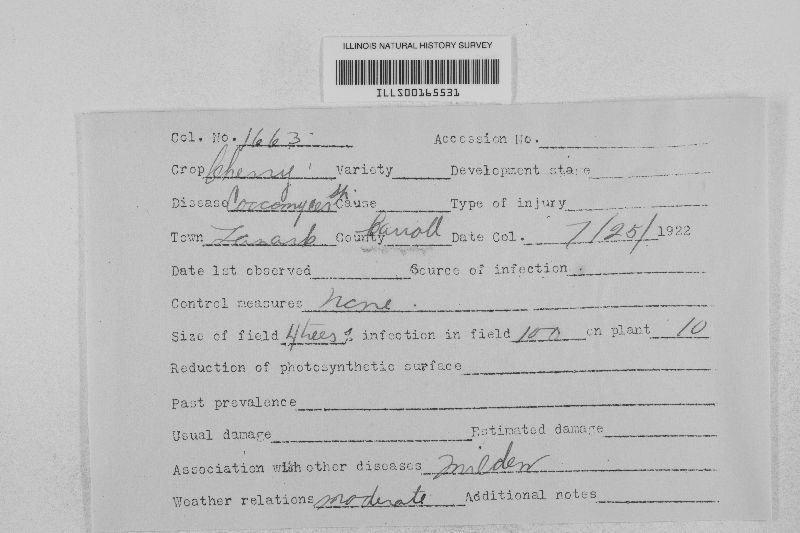 ILLINOIS NATURAL HISTORY SURVEY
ILLS00165531
Col. No. 1663 Accession No.
Crop Cherry Variety Development stage
Disease Coccomyces sp. Cause Type of injury
Town Lanark County Carroll Date Col. 7/25/1922
Date 1st observed Source of infection
Control measures None.
Size of field 4 trees % infection in field 100 on plant 10
Reduction of photosynthetic surface
Past prevalence
Usual damage Estimated damage
Association with other diseases mildew
Weather relations moderate Additional notes